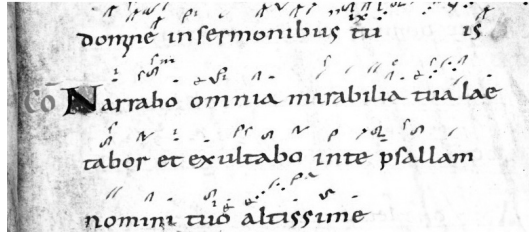 domine in sermonibus tu is
CŌ Narrabo omnia mirabilia tua lae
tabor et exultabo in te psallam
nomini tuo altissime